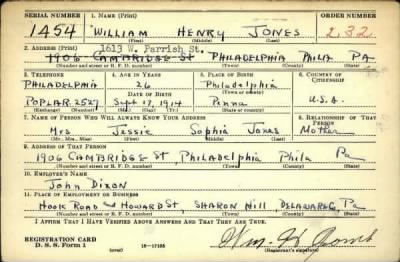 SERIAL NUMBER 1. NAME (Print) ORDER NUMBER
1454 WILLIAM HENRY JONES 232
(First) (Middle) (Last)
1613 W. Parrish St.
2. ADDRESS (Print)
1906 CAMBRIDGE St PHILADELPHIA PHILA PA
(Number and street or R. F. D. number) (Town) (County) (State)
3. TELEPHONE 4. AGE IN YEARS 5. PLACE OF BIRTH 6. COUNTRY OF CITIZENSHIP
PHILADELPHIA 26 Philadelphia
DATE OF BIRTH (Town or county)
POPLAR 2527 Sept 17, 1914 Penna U.S.A.
(Exchange) (No.) (Mo.) (Day) (Yr.) (State or country)
7. NAME OF PERSON WHO WILL ALWAYS KNOW YOUR ADDRESS 8. RELATIONSHIP OF THAT PERSON
Mrs Jessie Sophia Jones Mother
(Mr., Mrs., Miss) (First) (Middle) (Last)
9. ADDRESS OF THAT PERSON
1906 CAMBRIDGE St, Philadelphia Phila Pa
(Number and street or R. F. D. number) (Town) (County) (State)
10. EMPLOYER'S NAME
John Dixon
11. PLACE OF EMPLOYMENT OR BUSINESS
HOOK ROAD and HOWARD St, SHARON HILL, DELAWARE Pa
(Number and street or R. F. D. number) (Town) (County) (State)
I AFFIRM THAT I HAVE VERIFIED ABOVE ANSWERS AND THAT THEY ARE TRUE.
REGISTRATION CARD
D. S. S. Form 1 (over) 16-17105 (Registrant's signature)
Wm. H